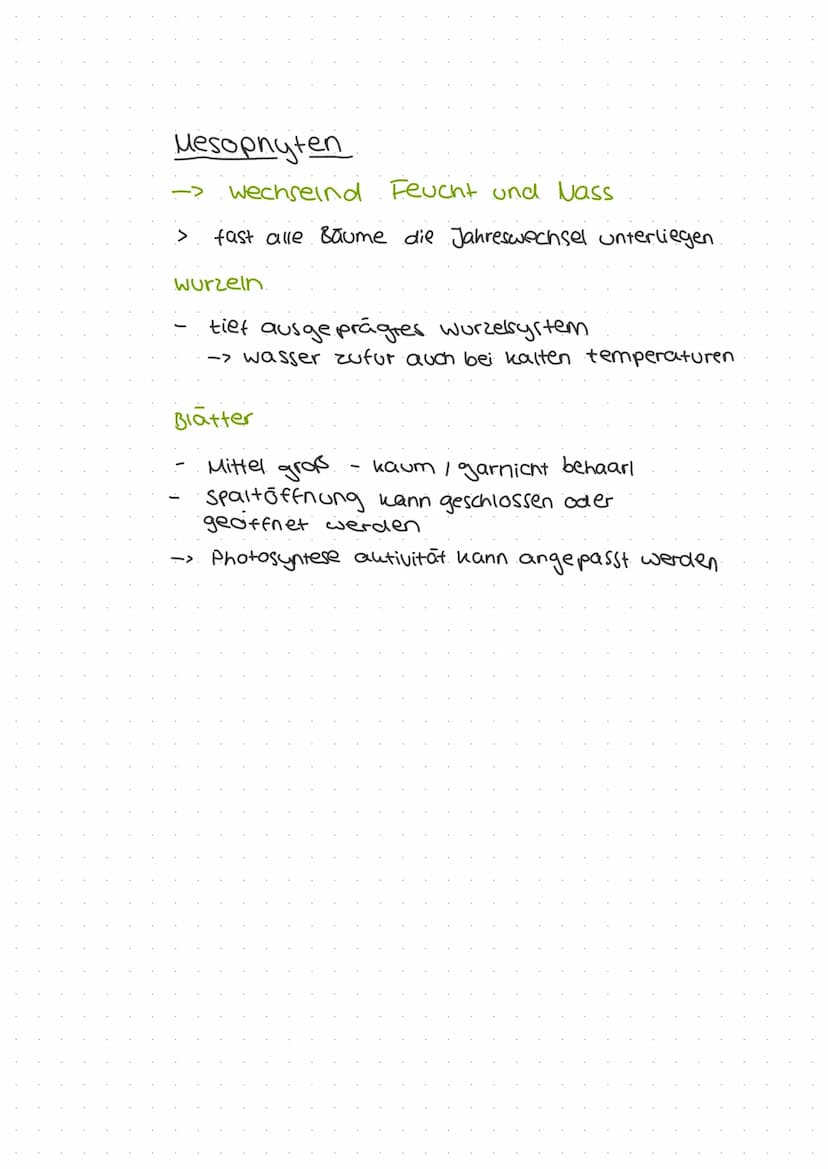 Mesophyten
-> wechselnd Feucht und Nass
> fast alle Bäume die Jahreswechsel unterliegen
wurzeln
- tief ausgeprägtes wurzelsystem
-> wasser zufur auch bei kalten temperaturen
Blätter
- Mittel groß - kaum / garnicht behaart
- Spaltöffnung kann geschlossen oder
geöffnet werden
-> Photosyntese aktivität kann angepasst werden